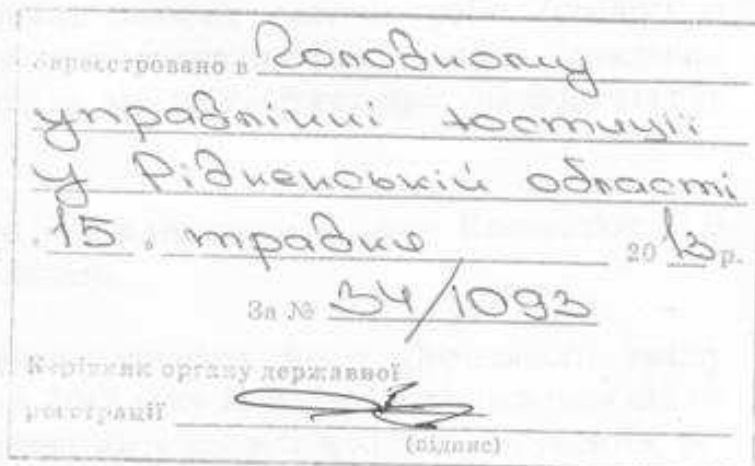 Зареєстровано в Головному
управлінні юстиції
у Рівненській області
"15" травня 2013 р.
За № 34/1093
Керівник органу державної
реєстрації
(підпис)